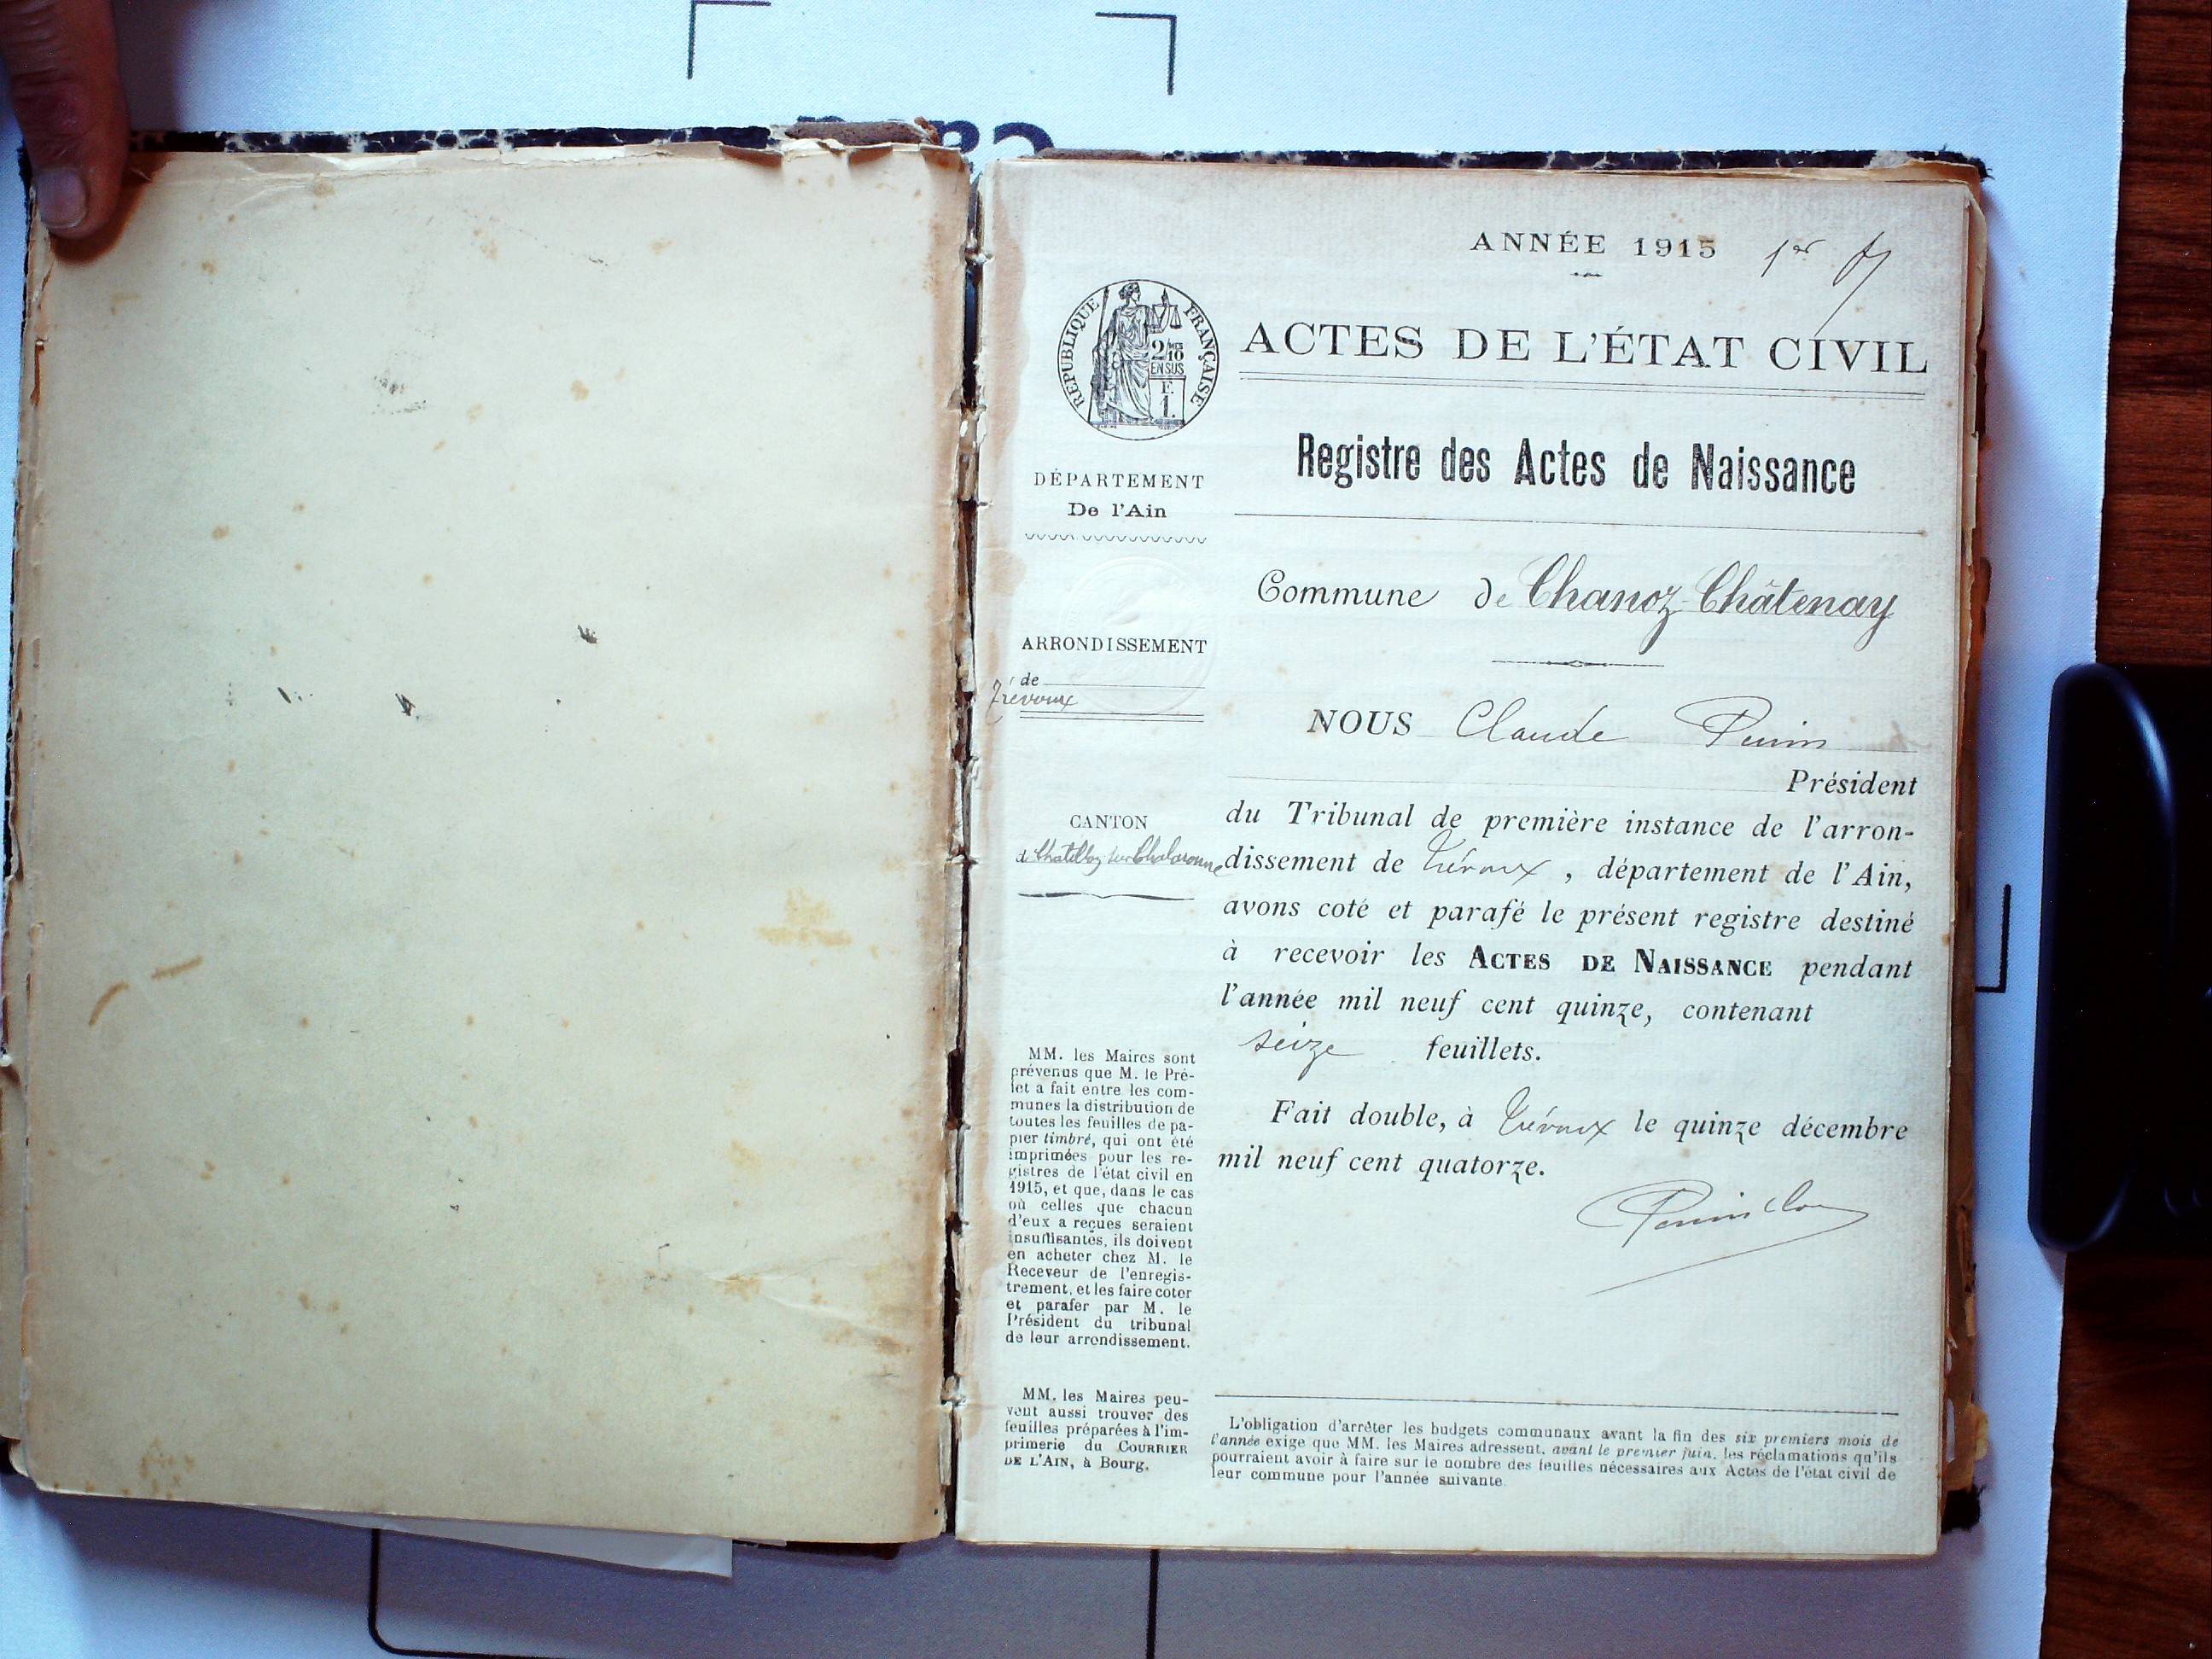 ANNÉE 1915 1er
RÉPUBLIQUE FRANÇAISE
2/10
EN SUS
F.
1.
ACTES DE L'ÉTAT CIVIL
Registre des Actes de Naissance
DÉPARTEMENT
De l'Ain
Commune de Chanoz-Châtenay
ARRONDISSEMENT
de
Trévoux
NOUS Claude
Président
du Tribunal de première instance de l'arron-
dissement de Trévoux, département de l'Ain,
avons coté et parafé le présent registre destiné
à recevoir les ACTES DE NAISSANCE pendant
l'année mil neuf cent quinze, contenant
seize feuillets.
Fait double, à Trévoux le quinze décembre
mil neuf cent quatorze.
CANTON
de Chatillon sur Chalaronne
MM. les Maires sont
prévenus que M. le Pré-
fet a fait entre les com-
munes la distribution de
toutes les feuilles de pa-
pier timbré, qui ont été
imprimées pour les re-
gistres de l'état civil en
1915, et que, dans le cas
où celles que chacun
d'eux a reçues seraient
insuffisantes, ils doivent
en acheter chez M. le
Receveur de l'enregis-
trement, et les faire coter
et parafer par M. le
Président du tribunal
de leur arrondissement.
MM. les Maires peu-
vent aussi trouver des
feuilles préparées à l'im-
primerie du COURRIER
DE L'AIN, à Bourg.
L'obligation d'arrêter les budgets communaux avant la fin des six premiers mois de
l'année exige que MM. les Maires adressent, avant le premier juin, les réclamations qu'ils
pourraient avoir à faire sur le nombre des feuilles nécessaires aux Actes de l'état civil de
leur commune pour l'année suivante.